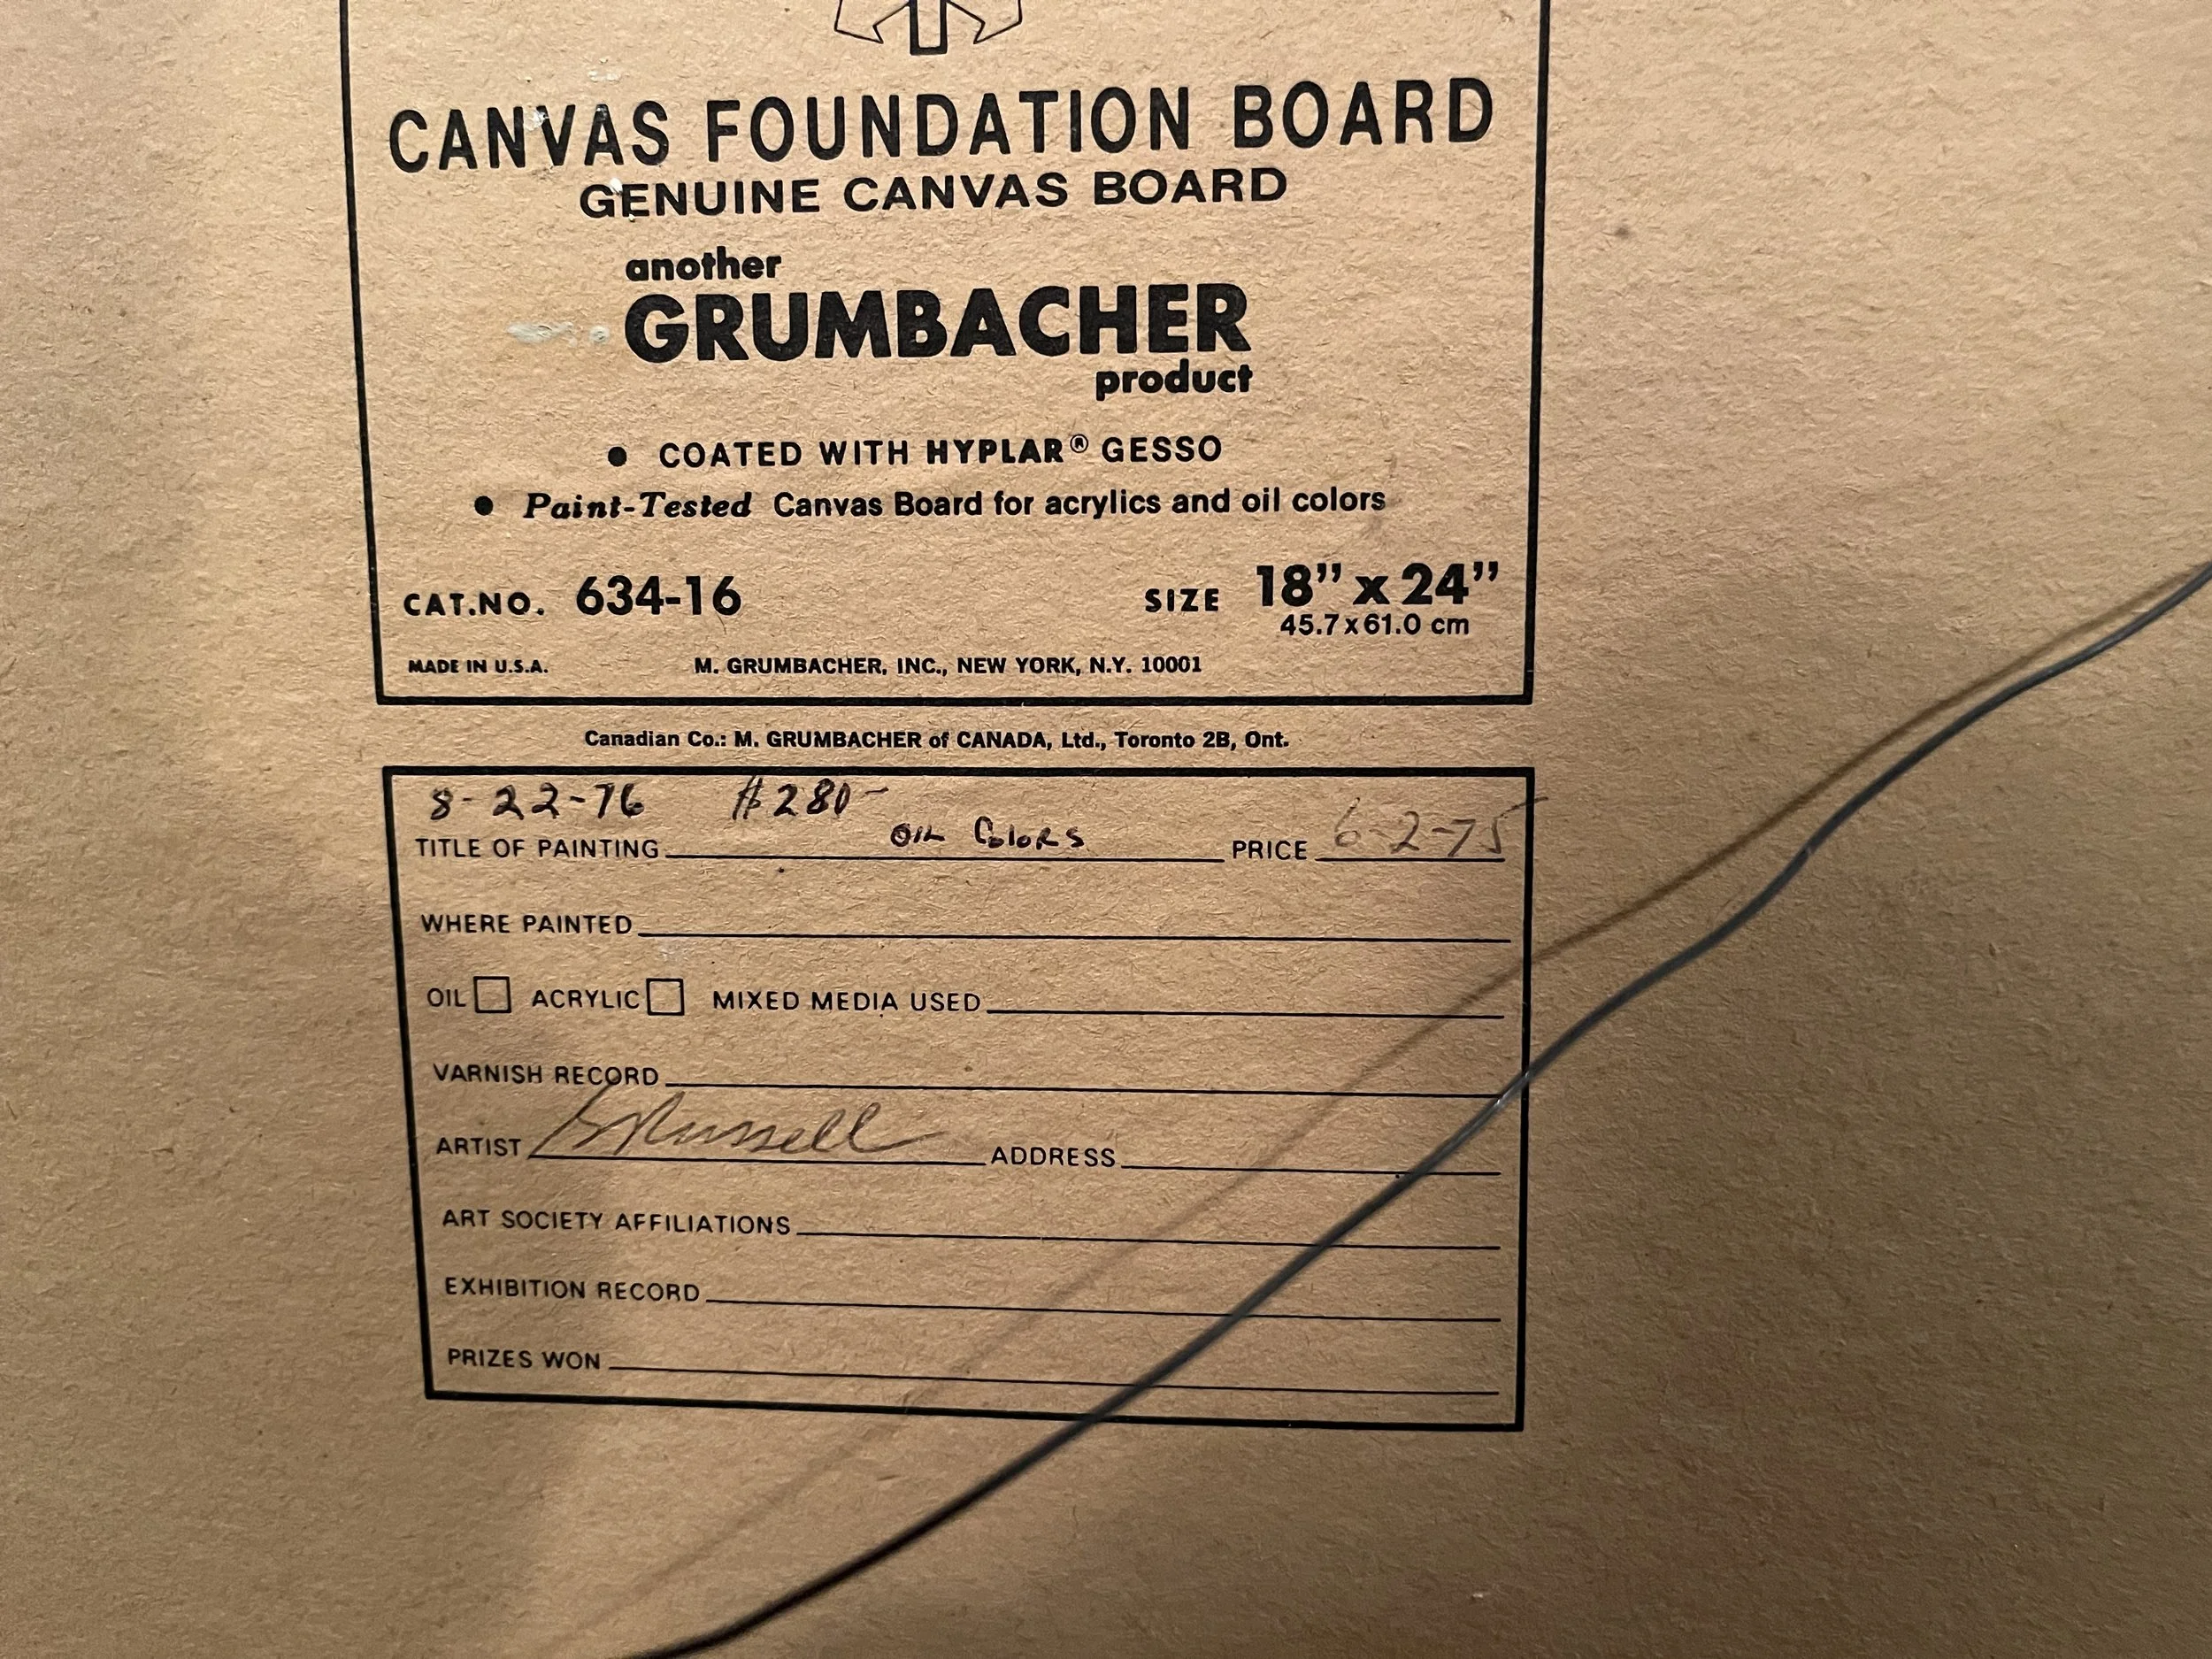 CANVAS FOUNDATION BOARD
GENUINE CANVAS BOARD
another
GRUMBACHER
product
• COATED WITH HYPLAR® GESSO
• Paint-Tested Canvas Board for acrylics and oil colors
CAT.NO. 634-16 SIZE 18" x 24"
45.7 x 61.0 cm
MADE IN U.S.A. M. GRUMBACHER, INC., NEW YORK, N.Y. 10001
Canadian Co.: M. GRUMBACHER of CANADA, Ltd., Toronto 2B, Ont.
8-22-76 $280-
TITLE OF PAINTING OIL COLORS PRICE 6-2-75
WHERE PAINTED
OIL ACRYLIC MIXED MEDIA USED
VARNISH RECORD
ARTIST Russell ADDRESS
ART SOCIETY AFFILIATIONS
EXHIBITION RECORD
PRIZES WON